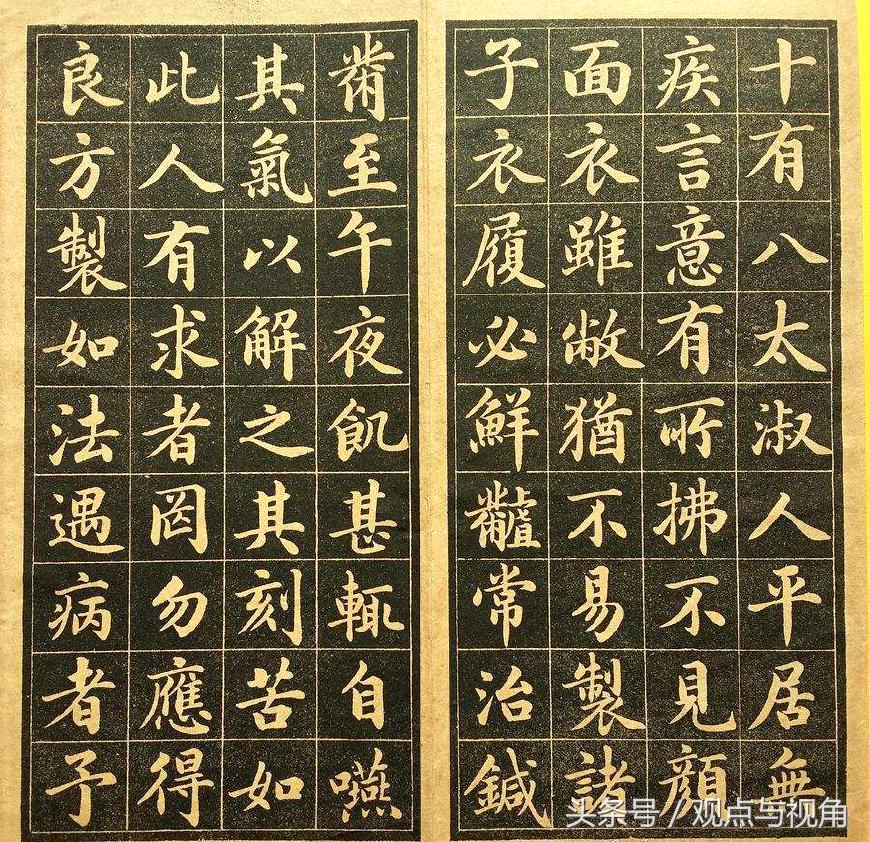 十有八太淑人平居無
疾言意有所拂不見顏
面衣雖敝猶不易製諸
子衣履必鮮𪓐常治鍼
黹至午夜飢甚輒自嚥
其氣以解之其刻苦如
此人有求者罔勿應得
良方製如法遇病者予
头条号 / 观点与视角